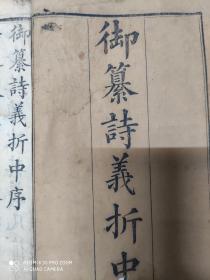 御纂詩義折中
御纂詩義折中序
REDMI K30 PRO
AI QUAD CAMERA